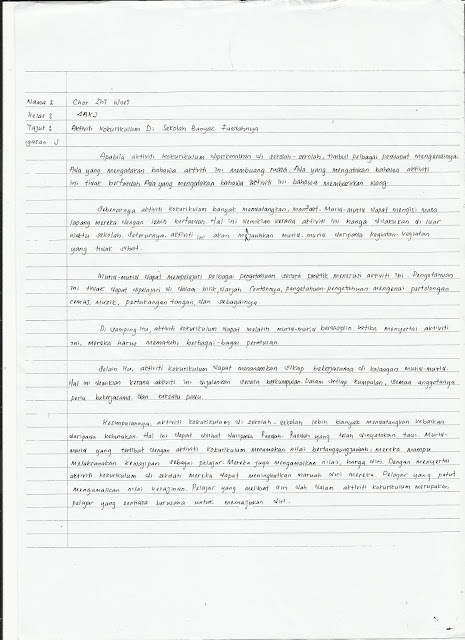 Nama : Chor Zhi Woei
Kelas : 4AKJ
Tajuk : Aktiviti Kokurikulum Di Sekolah Banyak Faedahnya
Apabila aktiviti kokurikulum diperkenalkan di sekolah-sekolah, timbul pelbagai pendapat mengenainya.
Ada yang mengatakan bahawa aktiviti ini membuang masa. Ada yang mengatakan bahawa aktiviti
ini tidak berfaedah. Ada yang mengatakan bahawa aktiviti ini bahawa membazirkan wang.
Sebenarnya aktiviti kokurikulum banyak mendatangkan manfaat. Murid-murid dapat mengisi masa
lapang mereka dengan lebih berfaedah. Hal ini demikian kerana aktiviti ini hanya dilakukan di luar
waktu sekolah. Seterusnya, aktiviti ini akan menjauhkan murid-murid daripada kegiatan-kegiatan
yang tidak sihat.
Murid-murid dapat mempelajari pelbagai pengetahuan secara praktik menerusi aktiviti ini. Pengetahuan
ini tidak dapat dipelajari di dalam bilik darjah. Contohnya, pengetahuan-pengetahuan mengenai pertolongan
cemas, muzik, pertukangan tangan, dan sebagainya.
Di samping itu, aktiviti kokurikulum dapat melatih murid-murid berdisiplin. Ketika menyertai aktiviti
ini, mereka harus mematuhi berbagai-bagai peraturan.
Selain itu, aktiviti kokurikulum dapat menanamkan sikap bekerjasama di kalangan murid-murid.
Hal ini demikian kerana aktiviti ini dijalankan secara berkumpulan. Dalam setiap kumpulan, semua anggotanya
perlu bekerjasama dan bersatu padu.
Kesimpulannya, aktiviti kokurikulum di sekolah-sekolah lebih banyak mendatangkan kebaikan
daripada keburukan. Hal ini dapat dilihat daripada faedah-faedah yang telah dinyatakan tadi. Murid-
murid yang terlibat dengan aktiviti kokurikulum menamakan nilai bertanggungjawab. Mereka mampu
melaksanakan kewajipan sebagai pelajar. Mereka juga mengamalkan nilai harga diri. Dengan menyertai
aktiviti kokurikulum di sekolah mereka dapat meningkatkan maruah diri mereka. Pelajar yang patut
mengamalkan nilai kerajinan. Pelajar yang melibat diri dalam aktiviti kokurikulum merupakan
pelajar yang sentiasa berusaha untuk memajukan diri.